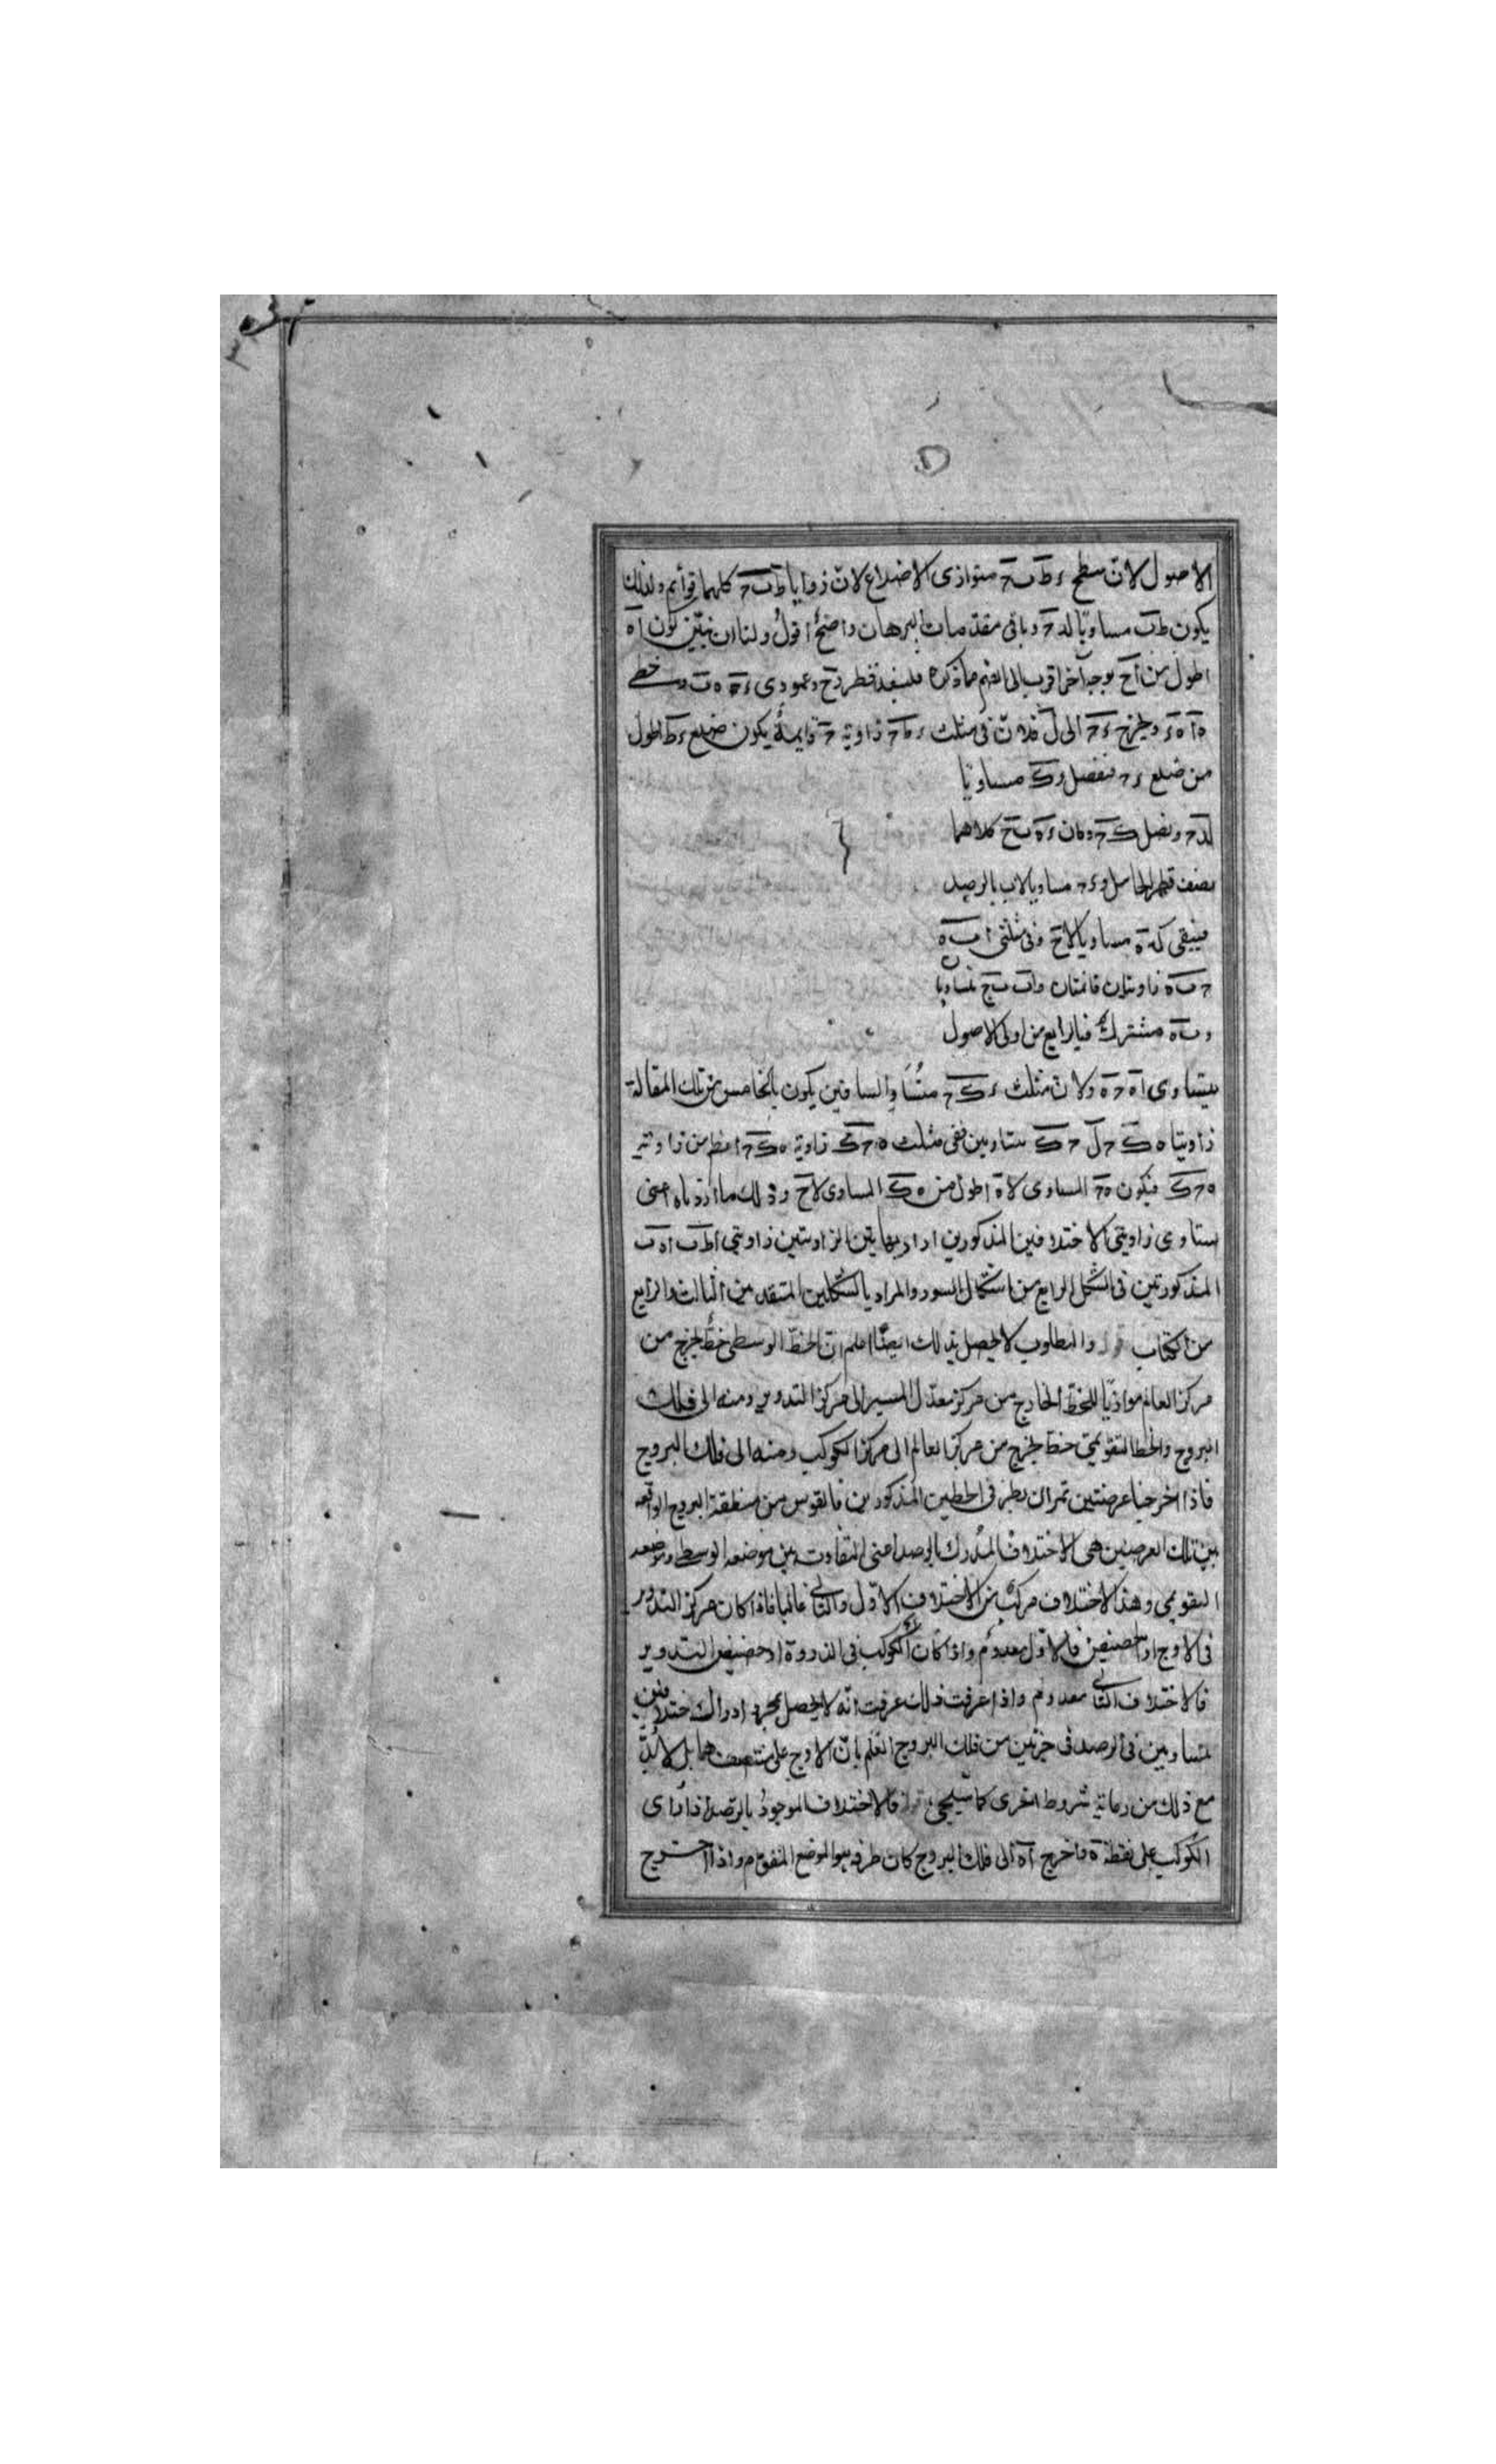 الاصول لان سطح ءط ب ح متوازى الاضلاع لان زوايا ط ب ح كلها قوائم ولذلك
يكون ط ب مساويا لد ح وباقى مقدمات البرهان واضح اقول ولنا ان نبين كون اه
اطول من اح بوجه آخر اقرب الى الفهم مما ذكره فلنعد قطر وعمودى ه ب وخطى
ه ا ه ء ونخرج ء ح الى ل فلان فى مثلث ء ح زاوية ح قايمة يكون ضلع ء ط اطول
من ضلع ء ح فنفصل ك مساويا
لد ح ونصل ك ح وكان ء ه ب ح كلاهما
نصف قطر الحامل و ء ح مساويا لاب بالرصد
فيبقى ك ه مساويا لاح وفى مثلثى ا ب ه
ح ب ه زاويتان قائمتان واب ب ح متساويا
و ب ه مشترك فبالرابع من اولى الاصول
يتساوى اه ح ه ولان مثلث ء ك ح متساوى الساقين يكون بالخامس من تلك المقالة
زاويتا ه ك ح ل ح ك متساويين ففى مثلث ه ح ك زاوية ه ك ح اعظم من زاوية
ه ح ك فيكون ه ح المساوى لاه اطول من ه ك المساوى لاح وذلك ما اردناه اعنى
تساوى زاويتى الاختلافين المذكورين اراد بهاتين الزاويتين زاويتى اط ب اه ب
المذكورتين فى الشكل الرابع من اشكال السور والمراد بالشكلين المتقدمين الثالث والرابع
من الكتاب قوله والمطلوب لا يحصل بذلك ايضا اعلم ان الخط الوسطى خط يخرج من
مركز العالم موازيا للخط الخارج من مركز معدل المسير الى مركز التدوير ومنه الى فلك
البروج والخط التقويمى خط يخرج من مركز العالم الى مركز الكوكب ومنه الى فلك البروج
فاذا اخرجنا عرضتين تمران بطرفى الخطين المذكورين فالقوس من منطقة البروج الواقعه
بين تلك العرضيتين هى الاختلاف المدرك بالرصد اعنى التفاوت بين موضعه الوسطى وموضعه
التقويمى وهذا الاختلاف مركب من الاختلاف الاول والثانى غالبا فاذا كان مركز التدوير
فى الاوج او الحضيض فالاول معدوم واذا كان الكوكب فى الذروة او حضيض التدوير
فالاختلاف الثانى معدوم واذا عرفت ذلك عرفت انه لا يحصل بمجرد ادراك اختلافين
متساويين فى الرصد فى جزئين من فلك البروج العلم بان الاوج على منتصفهما بل لابد
مع ذلك من رعاية شروط اخرى كما سيجئ قوله فالاختلاف الموجود بالرصد اذا راى
الكوكب على نقطة ه فاخرج اه الى فلك البروج كان طرفه هو الموضع المقوم واذا اخرج